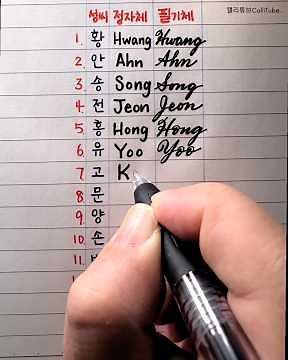 캘리튜브CalliTube
성씨 정자체 필기체
1. 황 Hwang Hwang
2. 안 Ahn Ahn
3. 송 Song Song
4. 전 Jeon Jeon
5. 홍 Hong Hong
6. 유 Yoo Yoo
7. 고 K
8. 문
9. 양
10. 손
11.